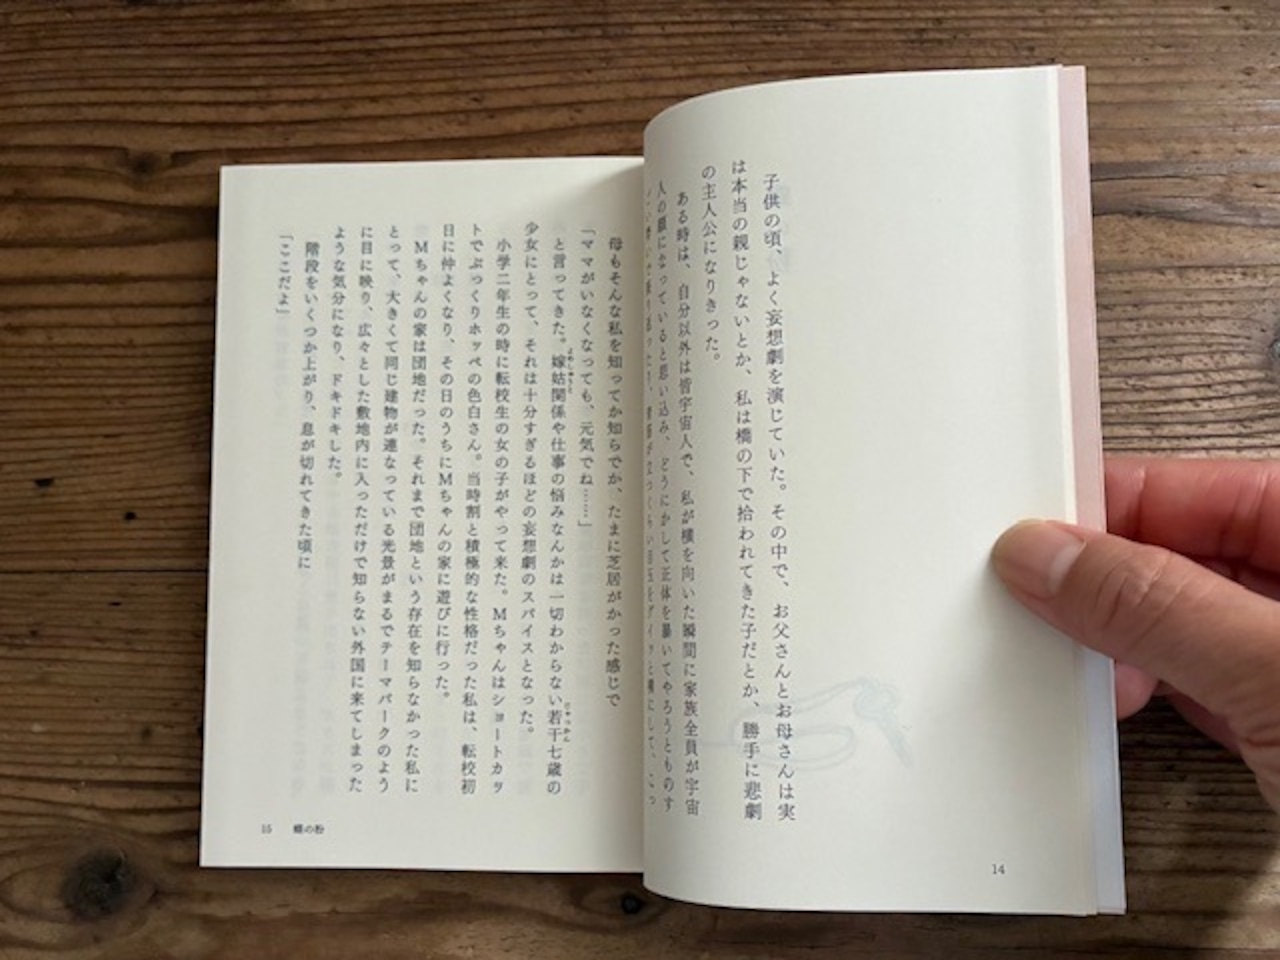 子供の頃、よく妄想劇を演じていた。その中で、お父さんとお母さんは実
は本当の親じゃないとか、私は橋の下で拾われてきた子だとか、勝手に悲劇
の主人公になりきった。
ある時は、自分以外は皆宇宙人で、私が横を向いた瞬間に家族全員が宇宙
人の顔になっていると思い込み、どうにかして正体を暴いてやろうとものす
14
母もそんな私を知ってか知らでか、たまに芝居がかった感じで
「ママがいなくなっても、元気でね……」
と言ってきた。嫁姑関係や仕事の悩みなんかは一切わからない若干七歳の
少女にとって、それは十分すぎるほどの妄想劇のスパイスとなった。
小学二年生の時に転校生の女の子がやって来た。Mちゃんはショートカッ
トでぷっくりホッペの色白さん。当時割と積極的な性格だった私は、転校初
日に仲よくなり、その日のうちにMちゃんの家に遊びに行った。
Mちゃんの家は団地だった。それまで団地という存在を知らなかった私に
とって、大きくて同じ建物が連なっている光景がまるでテーマパークのよう
に目に映り、広々とした敷地内に入っただけで知らない外国に来てしまった
ような気分になり、ドキドキした。
階段をいくつか上がり、息が切れてきた頃に
「ここだよ」
15 蝶の粉